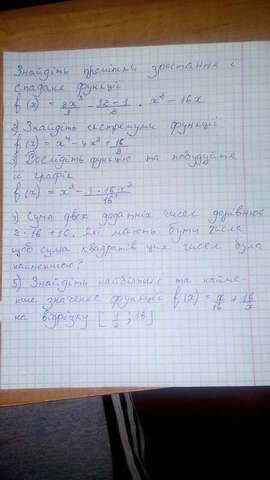 Знайдіть проміжки зростання і
спадання функції
f(x) = 2x³/3 - 32-1/2 · x² - 16x
2) Знайдіть екстремуми функції
f(x) = x⁴ - 4x² + 16/2
3) Дослідіть функцію та побудуйте
її графік
f(x) = x³ - 3·16x²/16
4) Сума двох додатніх чисел дорівнює
2·16+10. Які мають бути числа
щоб сума квадратів цих чисел була
найменшою?
5) Знайдіть найбільше та найме-
нше значення функції f(x) = x/16 + 16/x
на відрізку [1/2; 16]